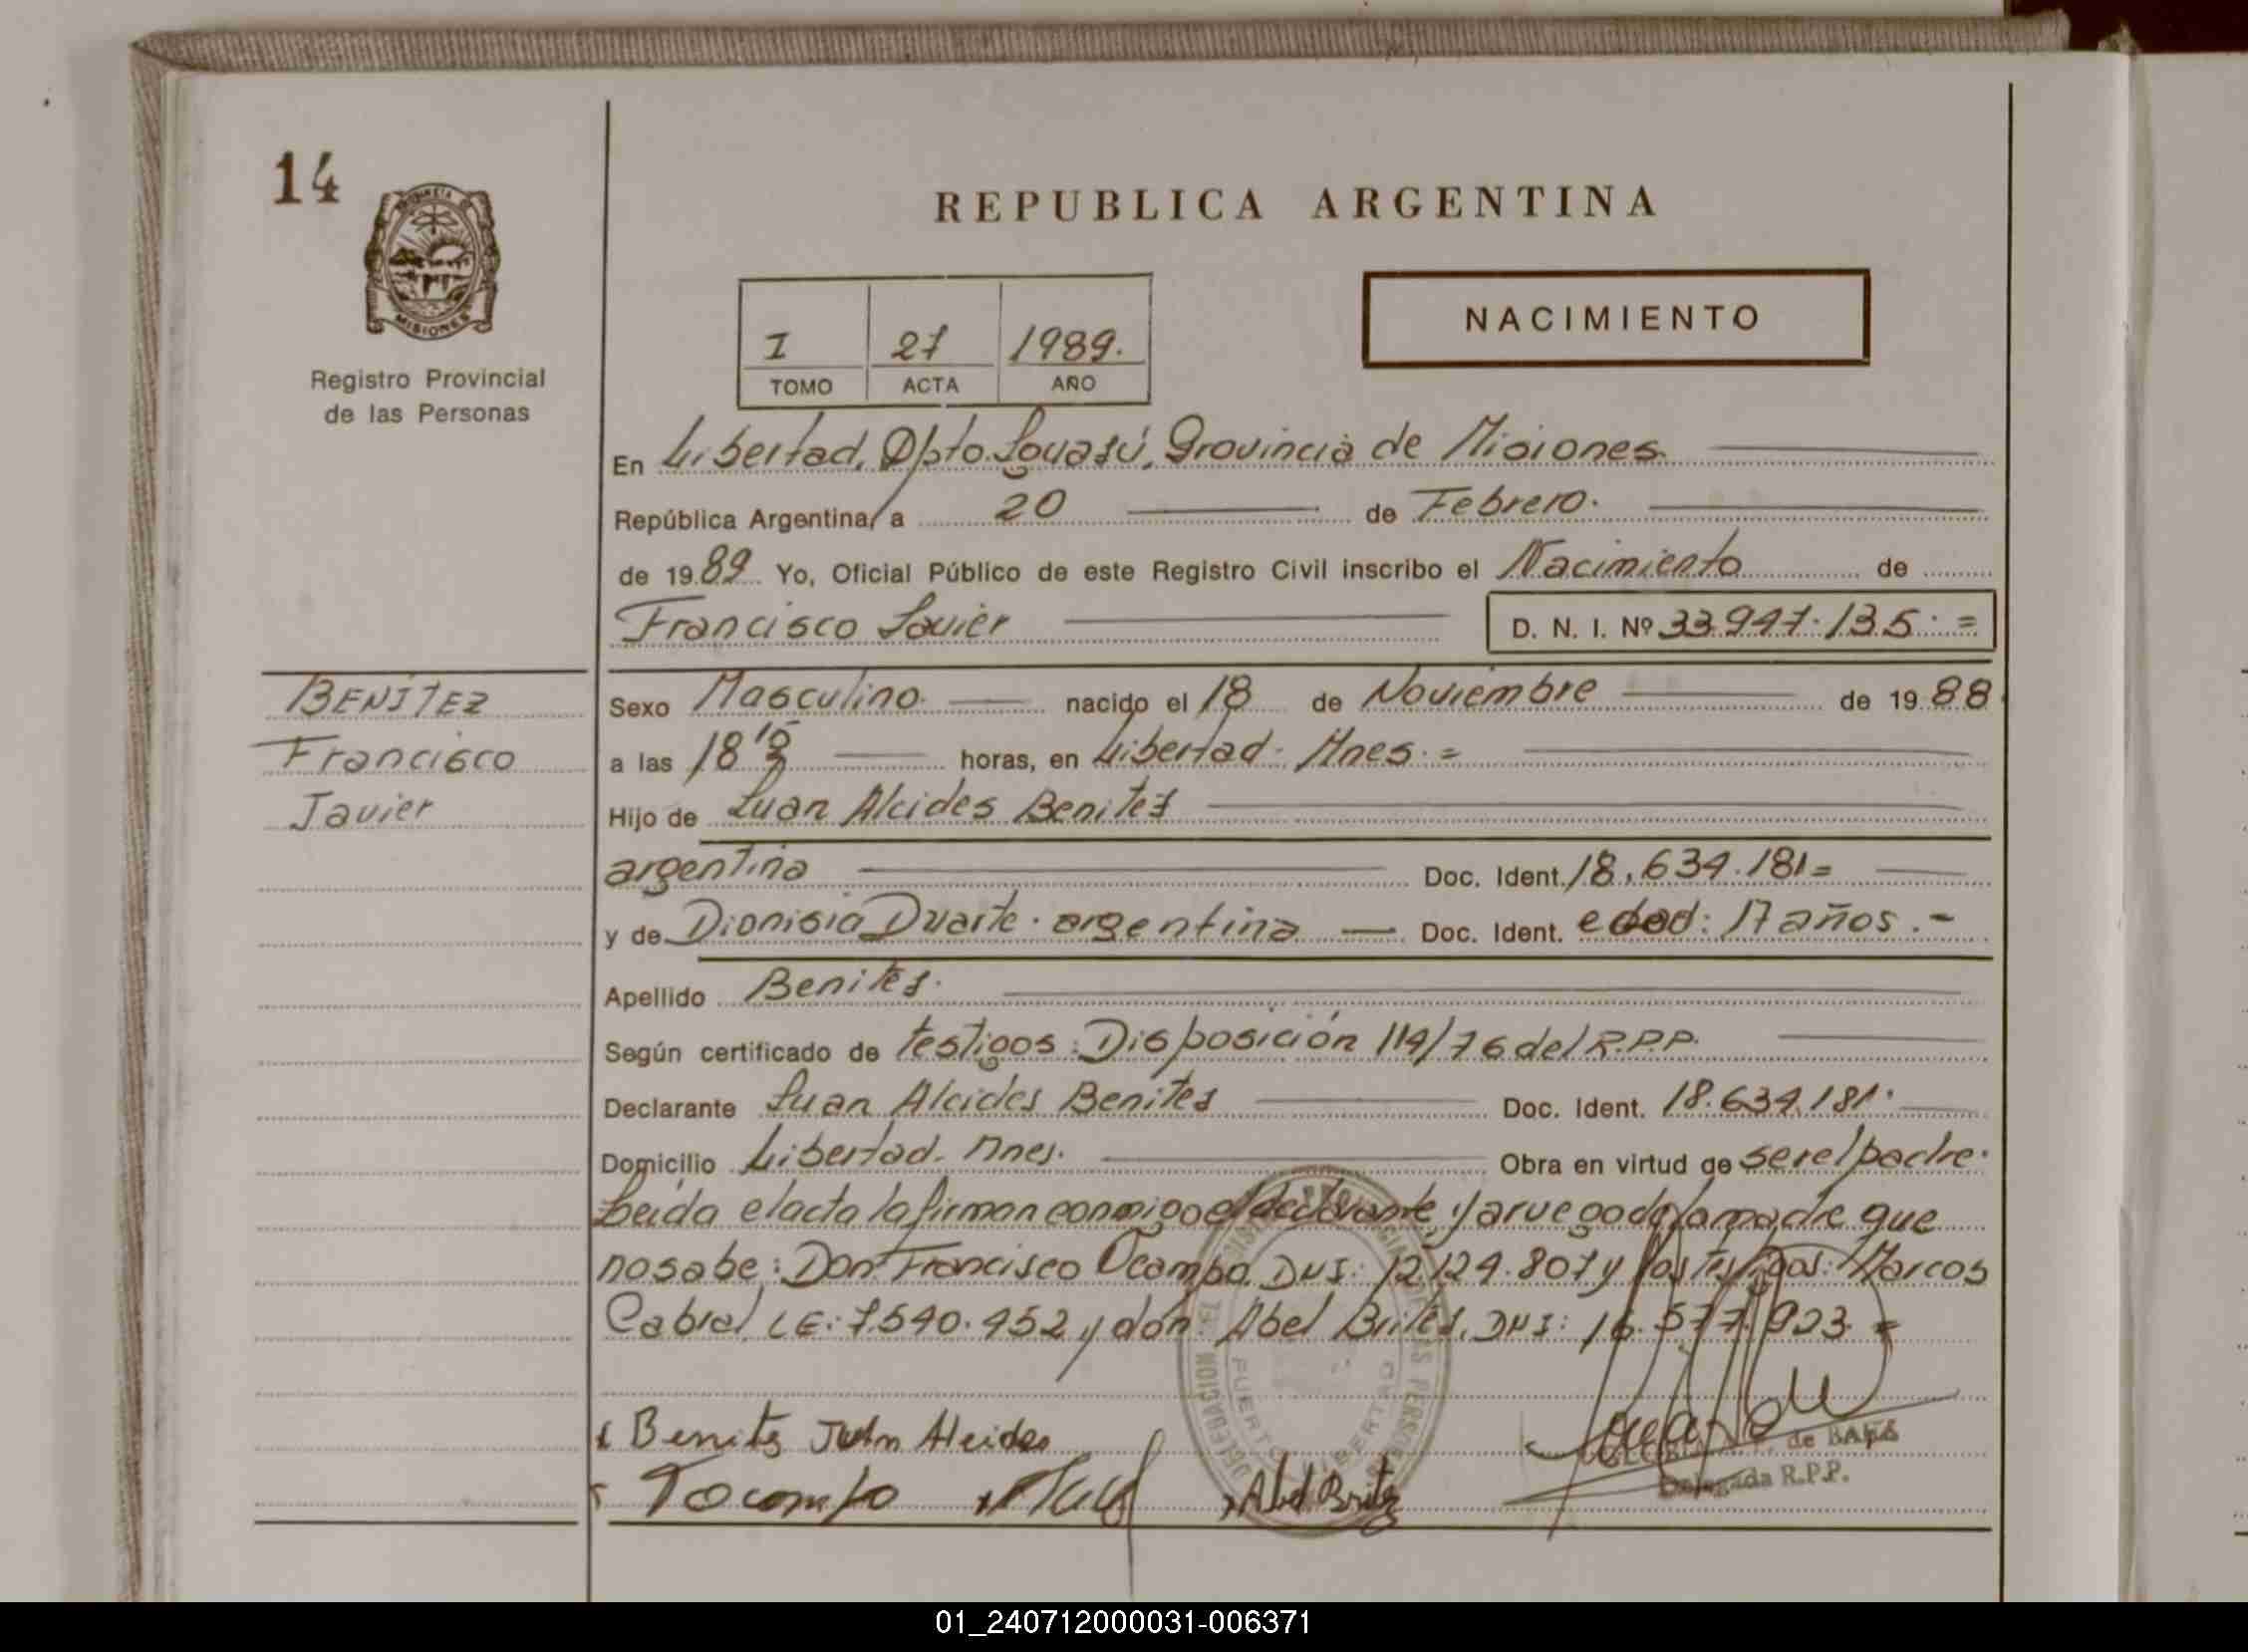 14
REPUBLICA ARGENTINA
MISIONES
Registro Provincial
de las Personas
I 27 1989.
TOMO ACTA AÑO
NACIMIENTO
En Libertad, Dpto. Iguasú, Provincia de Misiones.
República Argentina, a 20 de Febrero.
de 1989 Yo, Oficial Público de este Registro Civil inscribo el Nacimiento de
Francisco Javier D. N. I. Nº 33.947.135. =
BENITEZ
Francisco
Javier
Sexo Masculino. nacido el 18 de Noviembre de 1988.
a las 18 horas, en Libertad. Mnes. =
Hijo de Juan Alcides Benites
argentina Doc. Ident. 18.634.181=
y de Dionisia Duarte. argentina Doc. Ident. edad: 17 años.-
Apellido Benites.
Según certificado de testigos: Disposición 114/76 del R.P.P.
Declarante Juan Alcides Benites Doc. Ident. 18.634.181.
Domicilio Libertad. Mnes. Obra en virtud de ser el padre.
Leída el acta la firman conmigo el declarante, y a ruego de la madre que
no sabe: Don Francisco Ocampo. DNI: 12.124.807 y los testigos: Marcos
Cabral, LE: 7.540.452 y don Abel Brites, DNI: 16.577.923. =
Benites Juan Alcides
de BAEZ
Delegada R.P.P.
Focampo Abel Britez
DELEGACION DEL REGISTRO PROVINCIAL DE LAS PERSONAS
PUERTO LIBERTAD
01_240712000031-006371